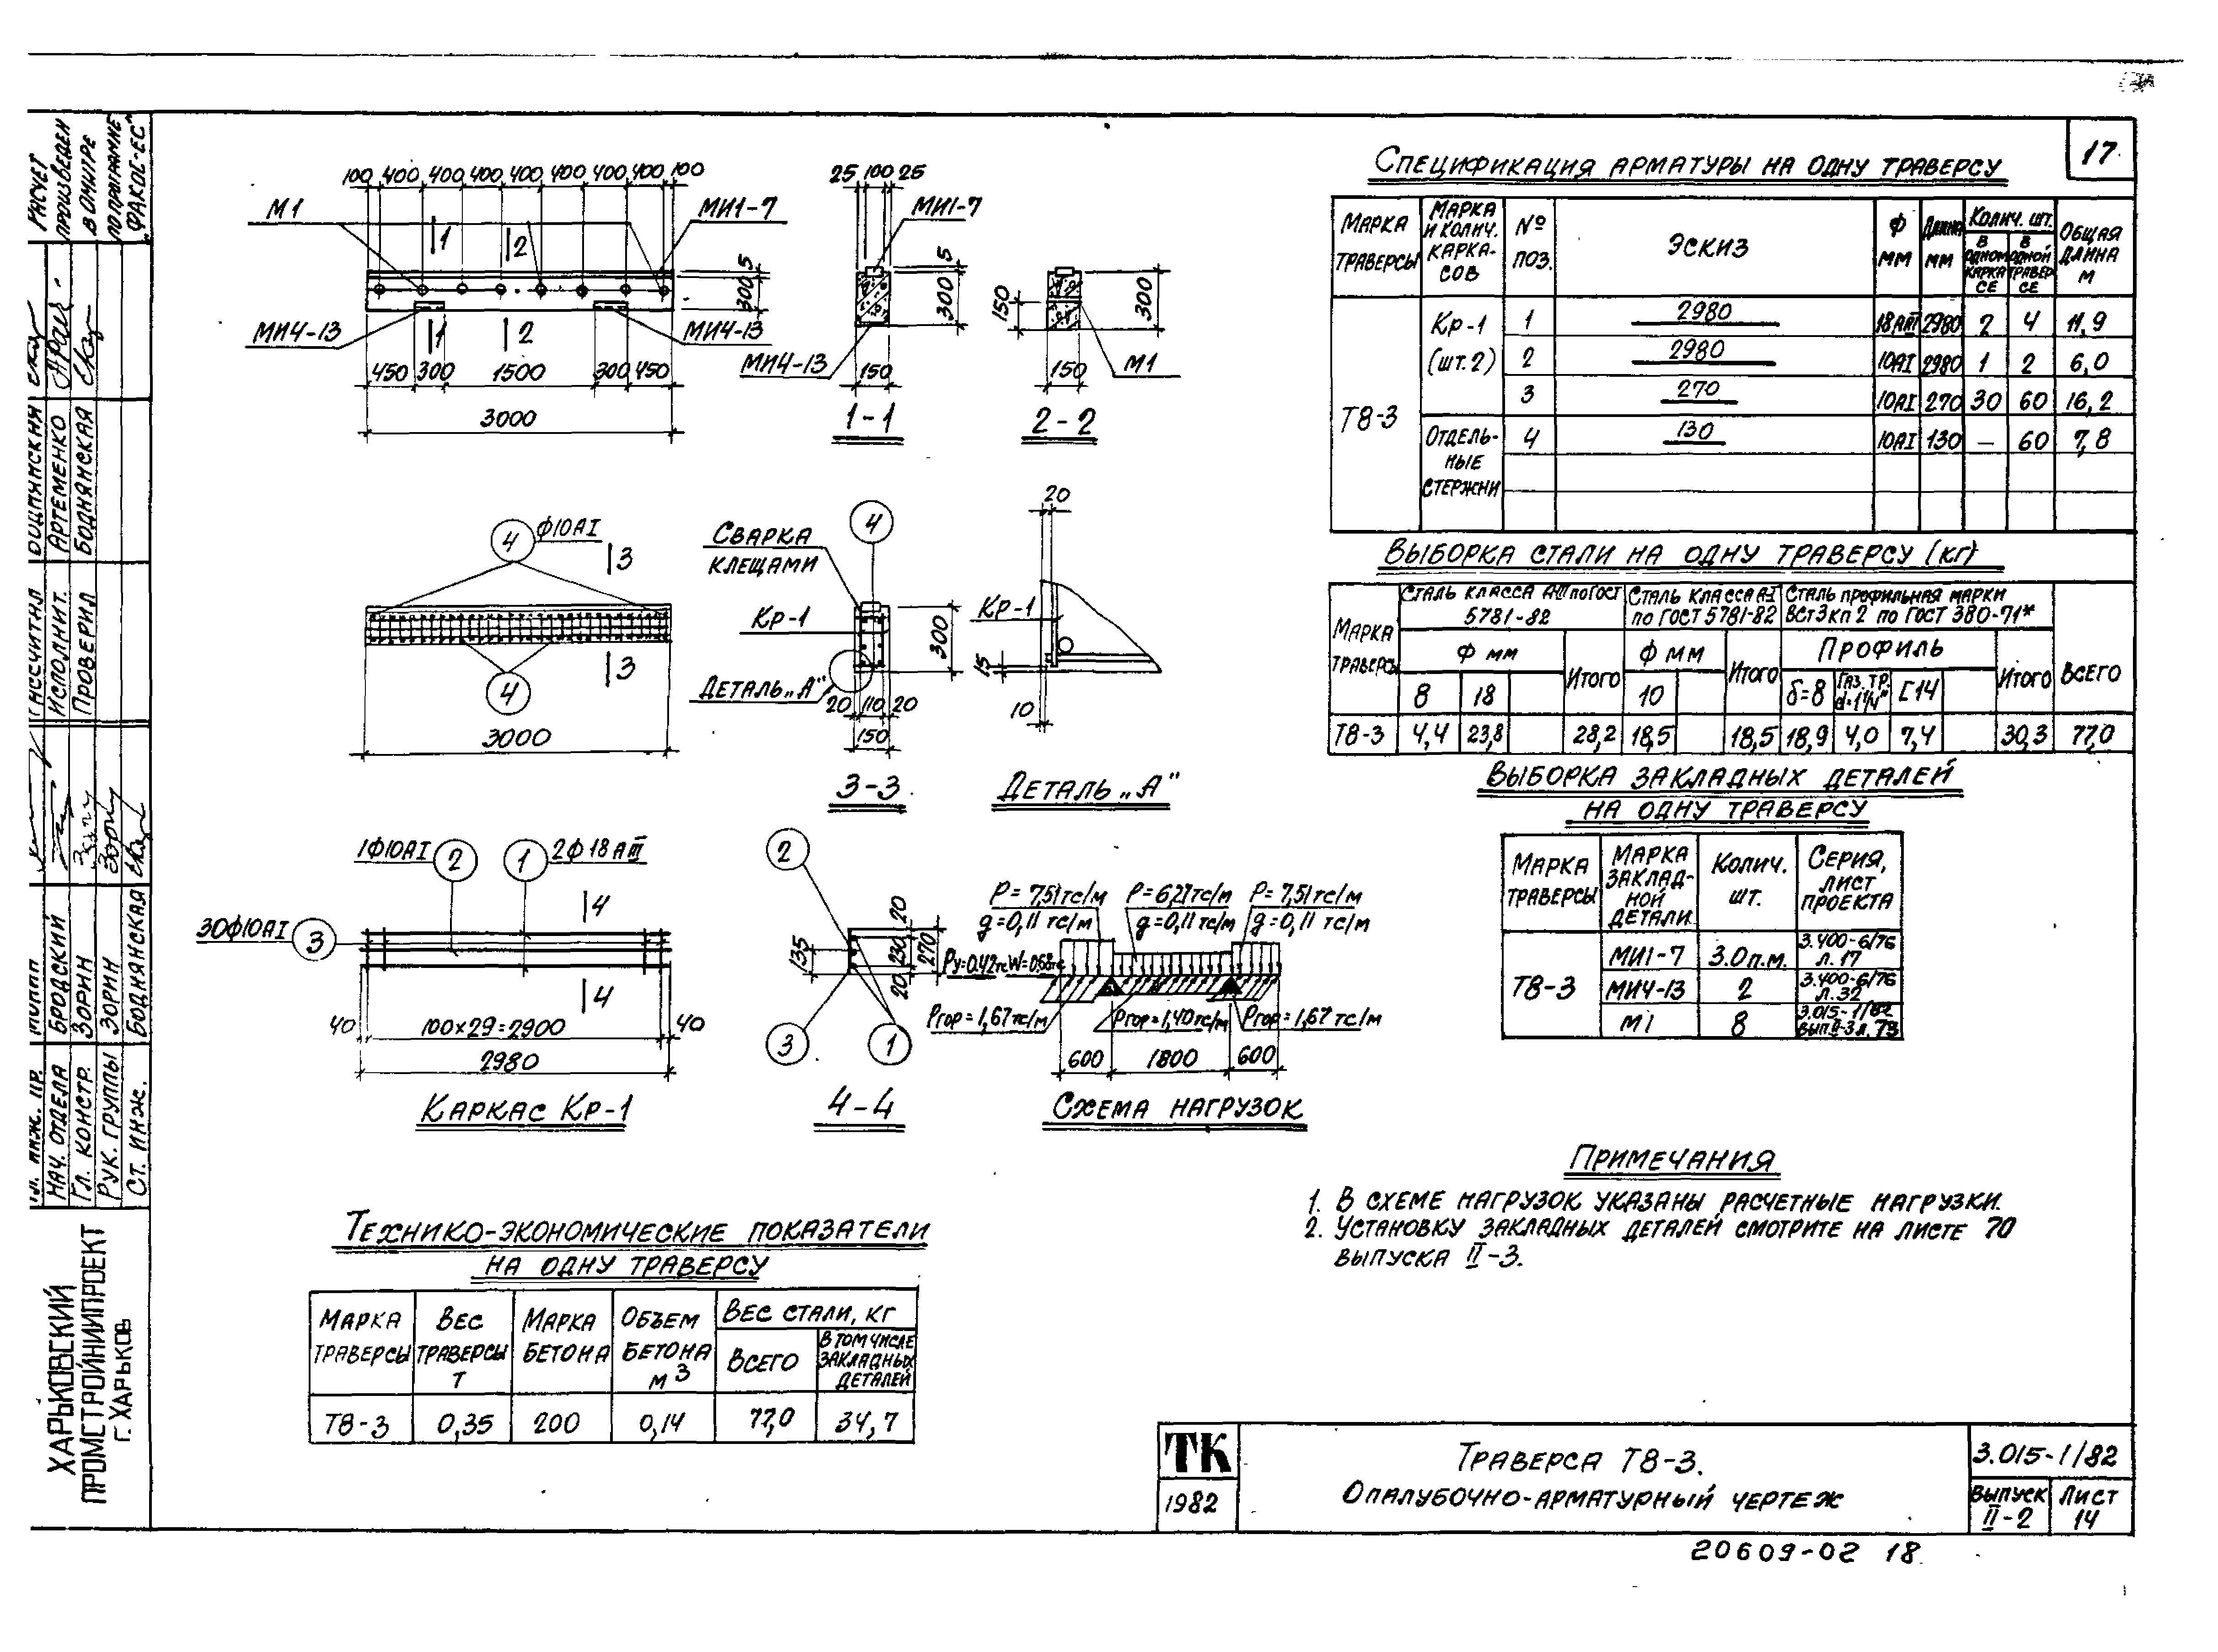 17
РАСЧЕТ
ПРОИЗВЕДЕН
В ОМИТРЕ
ПО ПРОГРАММЕ
"ФАКЛЕ-ЕС"
ИСПОЛНИТ. АРТЕМЕНКО
ПРОВЕРИЛ БОДНЯНСКАЯ
НАЧ. ОТДЕЛА БРОДСКИЙ
ГЛ. КОНСТР. ЗОРИН
РУК. ГРУППЫ ЗОРИН
СТ. ИНЖ. БОДНЯНСКАЯ
ХАРЬКОВСКИЙ
ПРОМСТРОЙНИИПРОЕКТ
Г. ХАРЬКОВ
100 400 400 400 400 400 400 400 100
М1
МИ1-7
1 2
5
300
МИ4-13
1 2
МИ4-13
450 300 1500 300 450
3000
25 100 25
МИ1-7
5
300
МИ4-13
150
1-1
150
300
М1
150
2-2
4 Ф10АI
3
4
3
3000
СВАРКА
КЛЕЩАМИ
4
КР-1
300
ДЕТАЛЬ „А"
20 110 20
150
3-3
20
КР-1
15
10
ДЕТАЛЬ „А"
1Ф10АI 2 1 2Ф18АIII
4
30Ф10АI 3
4
40 100×29=2900 40
2980
КАРКАС КР-1
2
135
20
230
270
20
3 1
4-4
Р=7,51тс/м Р=6,27тс/м Р=7,51тс/м
g=0,11 тс/м g=0,11 тс/м g=0,11 тс/м
Ргор=1,67тс/м Ргор=1,40тс/м Ргор=1,67тс/м
600 1800 600
СХЕМА НАГРУЗОК
СПЕЦИФИКАЦИЯ АРМАТУРЫ НА ОДНУ ТРАВЕРСУ
МАРКА ТРАВЕРСЫ МАРКА И КОЛИЧ. КАРКАСОВ № ПОЗ. ЭСКИЗ Ф ММ ДЛИНА ММ КОЛИЧ. ШТ. В ОДНОМ КАРКАСЕ В ОДНОЙ ТРАВЕРСЕ ОБЩАЯ ДЛИНА М
Т8-3 КР-1 (ШТ.2) 1 2980 18АIII 2980 2 4 11,9
2 2980 10АI 2980 1 2 6,0
3 270 10АI 270 30 60 16,2
ОТДЕЛЬНЫЕ СТЕРЖНИ 4 130 10АI 130 — 60 7,8
ВЫБОРКА СТАЛИ НА ОДНУ ТРАВЕРСУ (КГ)
МАРКА ТРАВЕРСЫ СТАЛЬ КЛАССА АIII ПО ГОСТ 5781-82 СТАЛЬ КЛАССА АI ПО ГОСТ 5781-82 СТАЛЬ ПРОФИЛЬНАЯ МАРКИ ВСТ3КП2 ПО ГОСТ 380-71* ВСЕГО
Ф ММ ИТОГО Ф ММ ИТОГО ПРОФИЛЬ ИТОГО
8 18 10 δ=8 ГАЗ. ТР. d=1¼" [14
Т8-3 4,4 23,8 28,2 18,5 18,5 18,9 4,0 7,4 30,3 77,0
ВЫБОРКА ЗАКЛАДНЫХ ДЕТАЛЕЙ
НА ОДНУ ТРАВЕРСУ
МАРКА ТРАВЕРСЫ МАРКА ЗАКЛАДНОЙ ДЕТАЛИ КОЛИЧ. ШТ. СЕРИЯ, ЛИСТ ПРОЕКТА
Т8-3 МИ1-7 3.0п.м. 3.400-6/76 Л.17
МИ4-13 2 3.400-6/76 Л.32
М1 8 3.015-1/82 ВЫП.II-3 Л.73
ПРИМЕЧАНИЯ
1. В СХЕМЕ НАГРУЗОК УКАЗАНЫ РАСЧЕТНЫЕ НАГРУЗКИ.
2. УСТАНОВКУ ЗАКЛАДНЫХ ДЕТАЛЕЙ СМОТРИТЕ НА ЛИСТЕ 70
ВЫПУСКА II-3.
ТЕХНИКО-ЭКОНОМИЧЕСКИЕ ПОКАЗАТЕЛИ
НА ОДНУ ТРАВЕРСУ
МАРКА ТРАВЕРСЫ ВЕС ТРАВЕРСЫ Т МАРКА БЕТОНА ОБЪЕМ БЕТОНА М3 ВЕС СТАЛИ, КГ
ВСЕГО В ТОМ ЧИСЛЕ ЗАКЛАДНЫХ ДЕТАЛЕЙ
Т8-3 0,35 200 0,14 77,0 34,7
ТК
1982
ТРАВЕРСА Т8-3.
ОПАЛУБОЧНО-АРМАТУРНЫЙ ЧЕРТЕЖ
3.015-1/82
ВЫПУСК II-2
ЛИСТ 14
20609-02 18